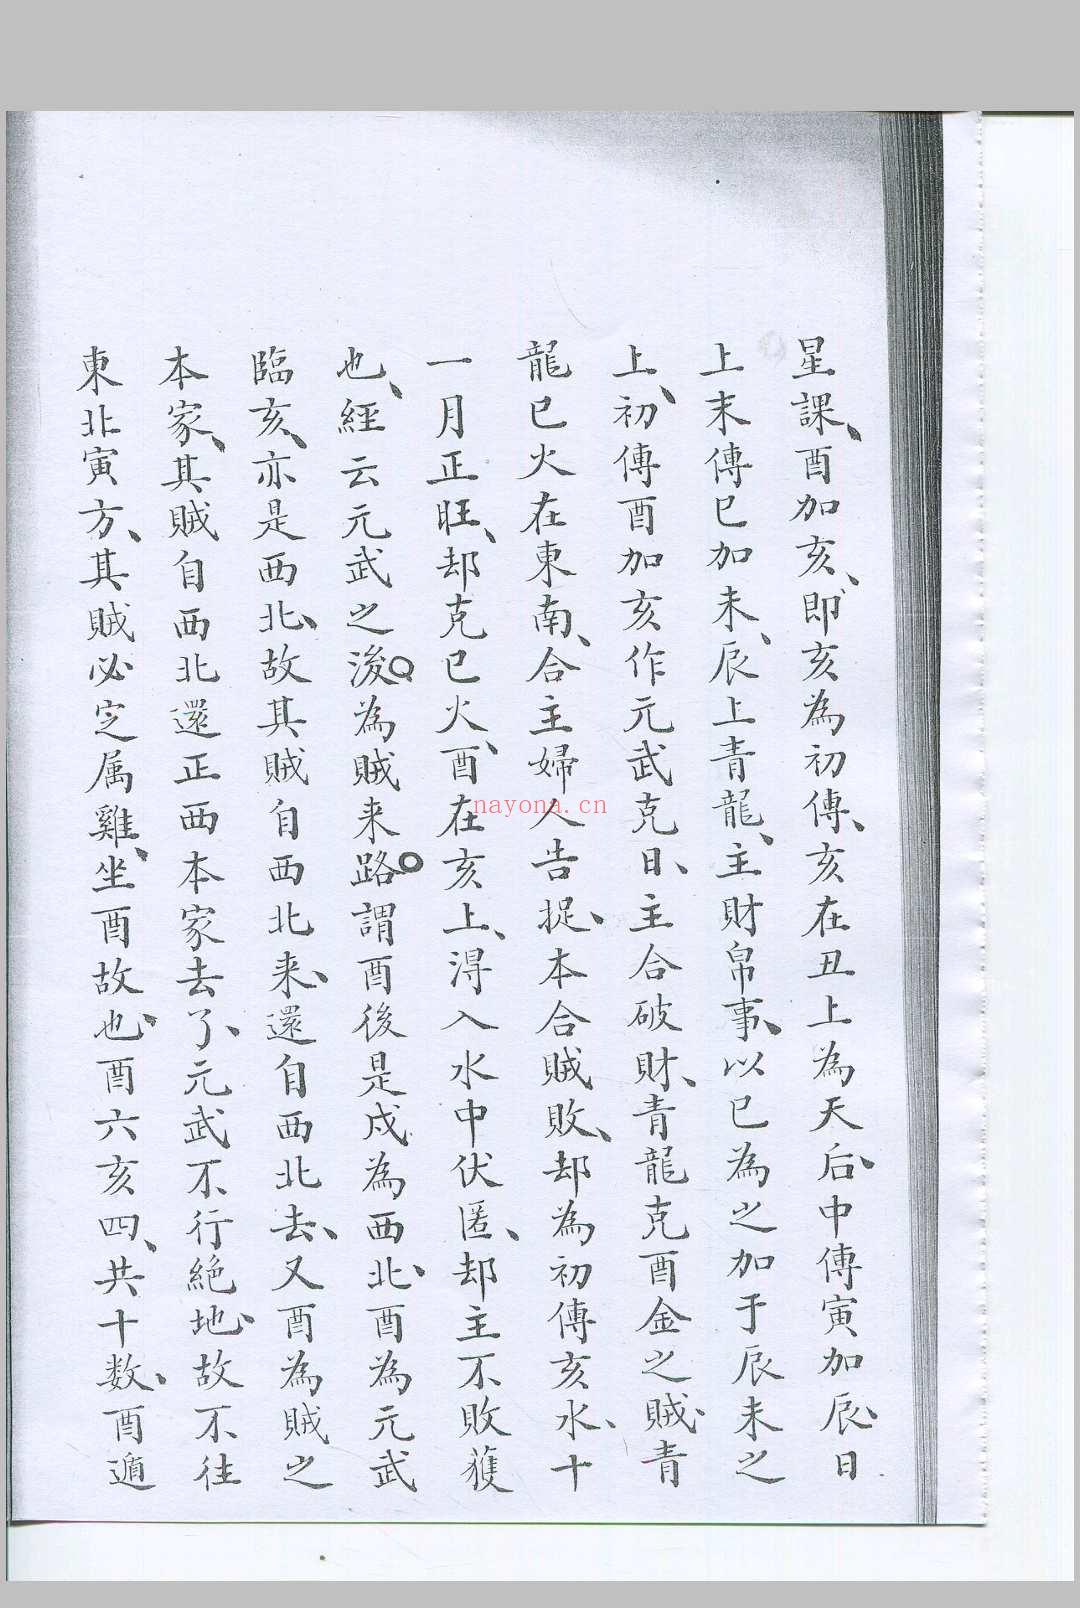 星課、酉加亥、即亥為初傳、亥在丑上為天后、中傳寅加辰、日
上末傳巳加未、辰上青龍、主財帛事、以巳為之加于辰未之
上、初傳酉加亥作元武克日、主合破財、青龍克酉金之賊、青
龍巳火在東南、合主婦人告捉、本合賊敗、却為初傳亥水、十
一月正旺、却克巳火、酉在亥上、淂入水中伏匿、却主不敗獲
也、經云元武之後。為賊来路。謂酉後是戌為西北、酉為元武
臨亥、亦是西北、故其賊自西北来、還自西北去、又酉為賊之
本家、其賊自西北還正西本家去了、元武不行絕地、故不往
東北寅方、其賊必定属雞、坐酉故也、酉六亥四、共十数、酉遁
nayona.cn